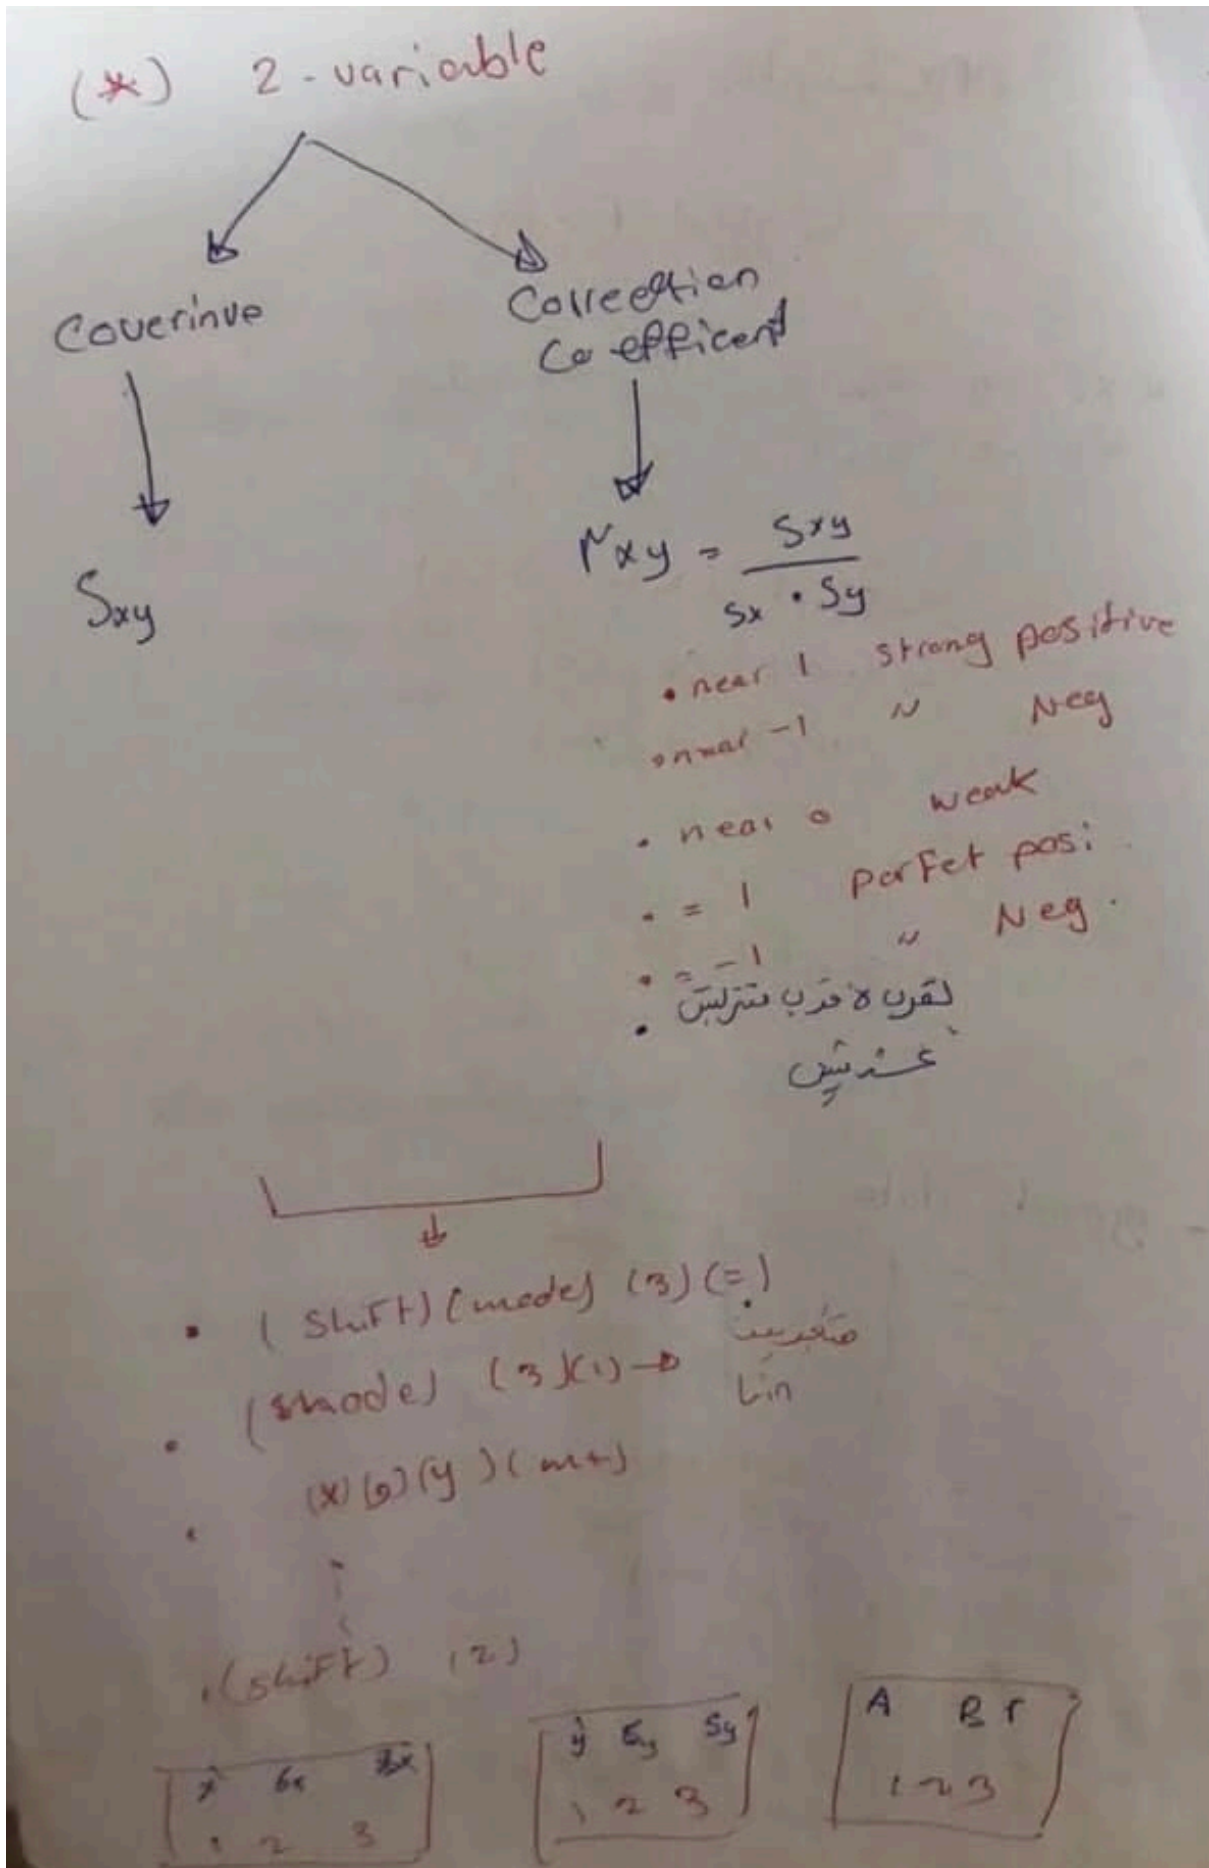 (*) 2-variable
Coverinve
Collection
Co efficent
Sxy
rxy = Sxy / Sx • Sy
• near 1 strong positive
• near -1 〃 Neg
• near 0 weak
• = 1 perfet posi
• = -1 〃 Neg.
• لقرب
(Shift) (mode) (3) (=)
(mode) (3)(1) →
Lin
(x) (و) (y) (m+)
• (shift) (2)
x̂ 6x Sx
1 2 3
ŷ 6y Sy
1 2 3
A B r
1 2 3